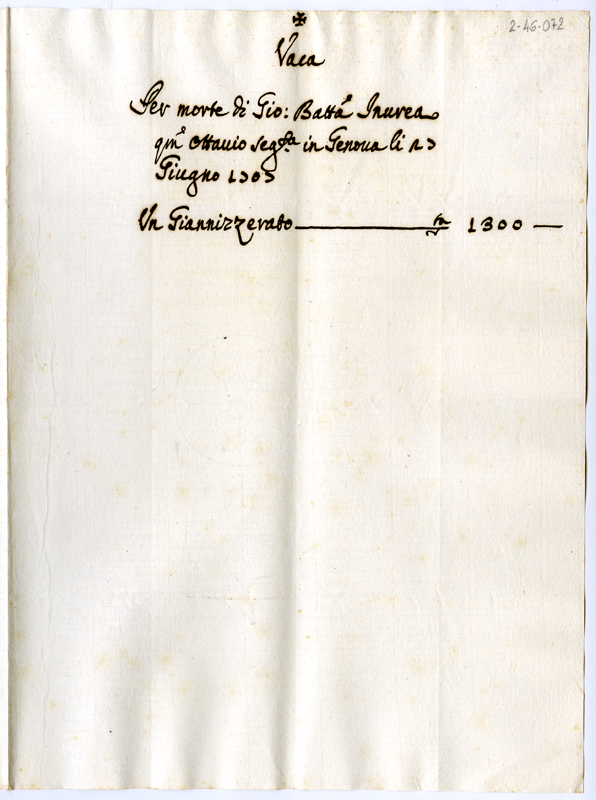 2-46-072
✠
Vaca
Per morte di Gio: Batta Inurea
qm Ottauio seg.ta in Genoua li 23
Giugno 1703
Un Giannizzerato 1300 —